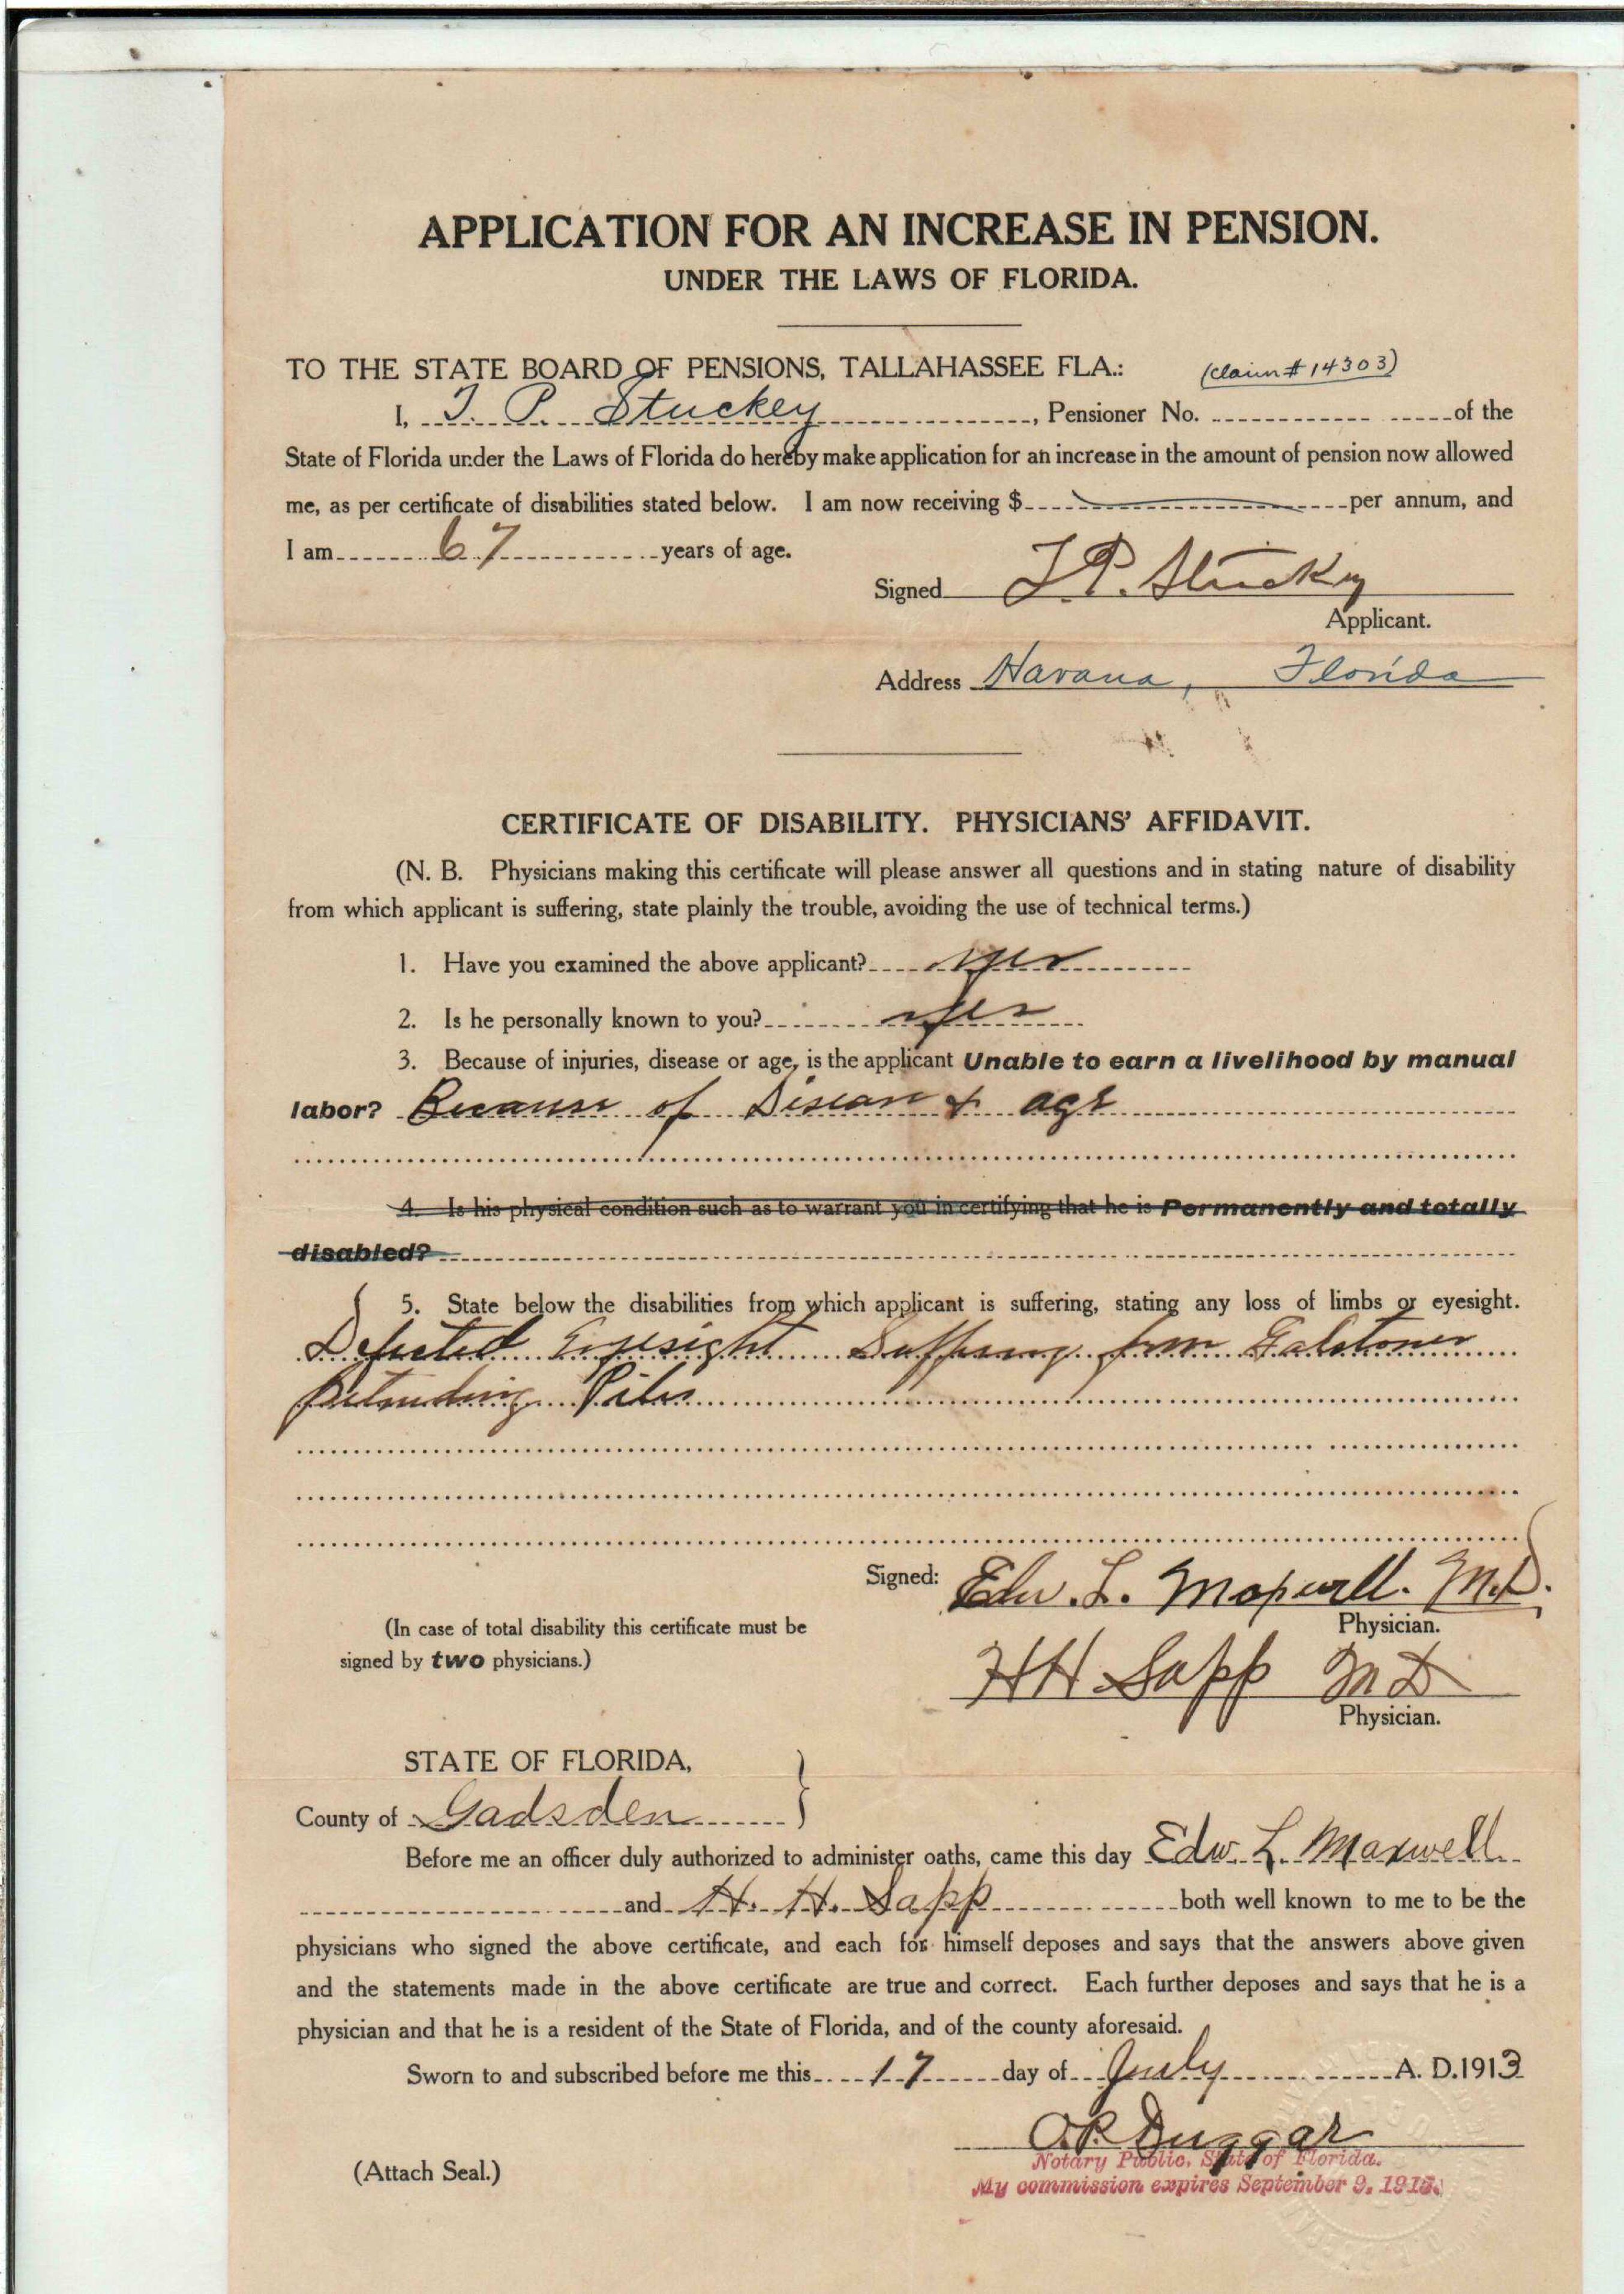 APPLICATION FOR AN INCREASE IN PENSION.
UNDER THE LAWS OF FLORIDA.
TO THE STATE BOARD OF PENSIONS, TALLAHASSEE FLA.: (Claim # 14303)
I, T. P. Stuckey, Pensioner No. of the
State of Florida under the Laws of Florida do hereby make application for an increase in the amount of pension now allowed
me, as per certificate of disabilities stated below. I am now receiving $ per annum, and
I am 67 years of age.
Signed T. P. Stuckey
Applicant.
Address Havana, Florida
CERTIFICATE OF DISABILITY. PHYSICIANS' AFFIDAVIT.
(N. B. Physicians making this certificate will please answer all questions and in stating nature of disability
from which applicant is suffering, state plainly the trouble, avoiding the use of technical terms.)
1. Have you examined the above applicant? yes
2. Is he personally known to you? yes
3. Because of injuries, disease or age, is the applicant Unable to earn a livelihood by manual
labor? Because of Disease & age
4. Is his physical condition such as to warrant you in certifying that he is Permanently and totally
disabled?
5. State below the disabilities from which applicant is suffering, stating any loss of limbs or eyesight.
Defected Eyesight Suffering from Galstones
Piles
Signed: Edw. L. Maxwell. M.D.
Physician.
(In case of total disability this certificate must be
signed by two physicians.)
HH Sapp MD
Physician.
STATE OF FLORIDA,
County of Gadsden }
Before me an officer duly authorized to administer oaths, came this day Edw. L. Maxwell
and H. H. Sapp both well known to me to be the
physicians who signed the above certificate, and each for himself deposes and says that the answers above given
and the statements made in the above certificate are true and correct. Each further deposes and says that he is a
physician and that he is a resident of the State of Florida, and of the county aforesaid.
Sworn to and subscribed before me this 17 day of July A. D. 1913
O.R. Duggar
Notary Public, State of Florida.
(Attach Seal.)
My commission expires September 9, 1915.